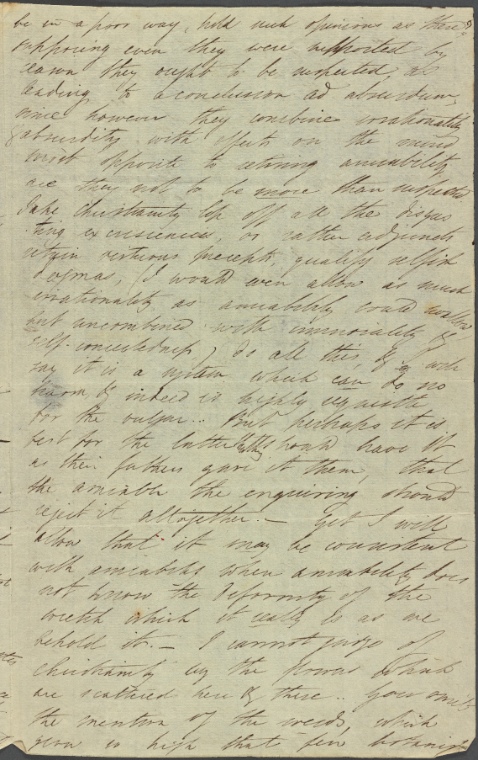 be in a poor way, hold such opinions as these?
supposing even they were supported by
reason they ought to be suspected, as
leading to a conclusion ad absurdum,
since however they combine irrationality
& absurdity with effects on the mind
most opposite to retiring amiability
are they not to be more than suspected
Take Christianity lop off all the disgus
ting excrescences, or rather adjuncts
retain virtuous precepts, qualify selfish
dogmas, I would even allow as much
irrationality as amiability could swallow
but uncombined with immorality &
self-conceitedness, do all this, & I will
say it is a system which can do no
harm & indeed is highly requisite
for the vulgar.. But perhaps it is
best for the latter that they should have it
as their fathers gave it them, that
the amiable the enquiring should
reject it altogether.— Yet I will
allow that it may be consistent
with amiability when amiability does
not know the deformity of the
wretch which it really is as we
behold it.— I cannot judge of
Christianity by the flowers which
are scattered here & there.. you omit
the mention of the weeds, which
grow so high that few botanists